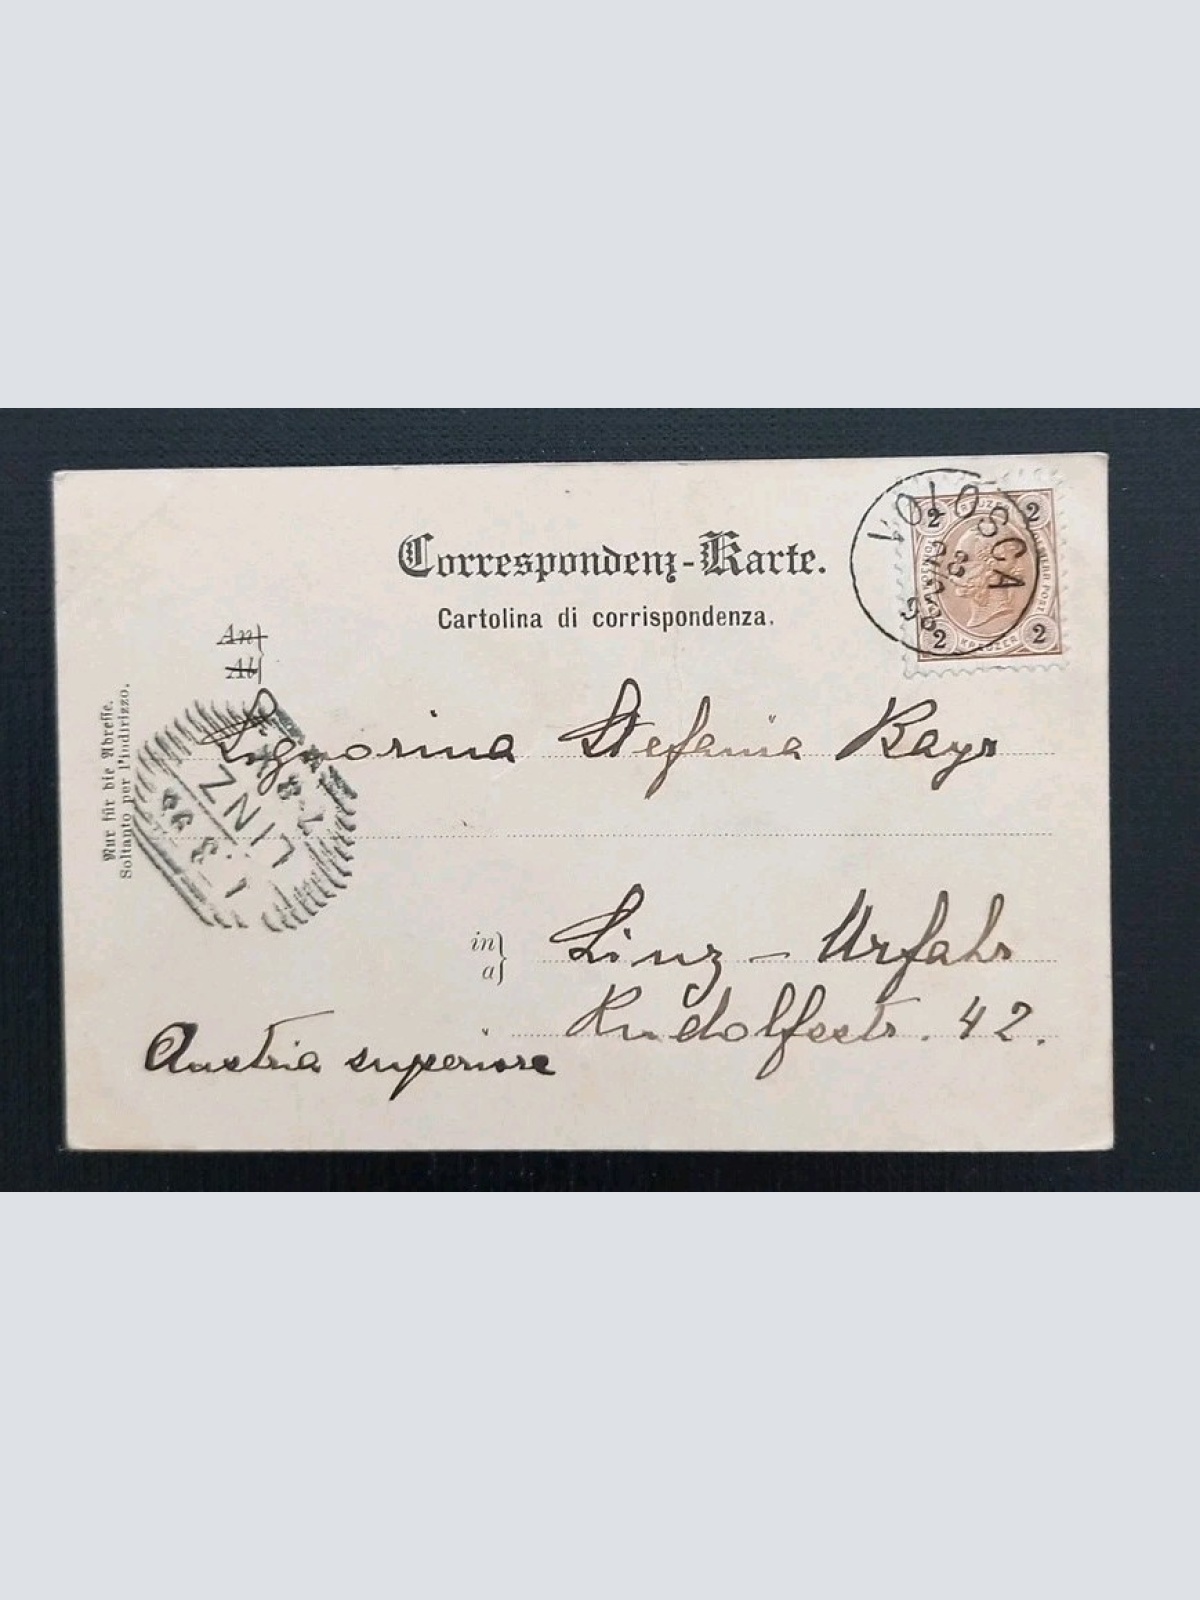 Correspondenz-Karte.
Cartolina di corrispondenza.
An
Al
Nur für die Adresse.
Soltanto per l'indirizzo.
VOLOSCA
2 KREUZER 2
2 KREUZER 2
LINZ
Signorina Stefania Bayr
in
a
Linz - Urfahr
Rudolfsstr. 42.
Austria superiore